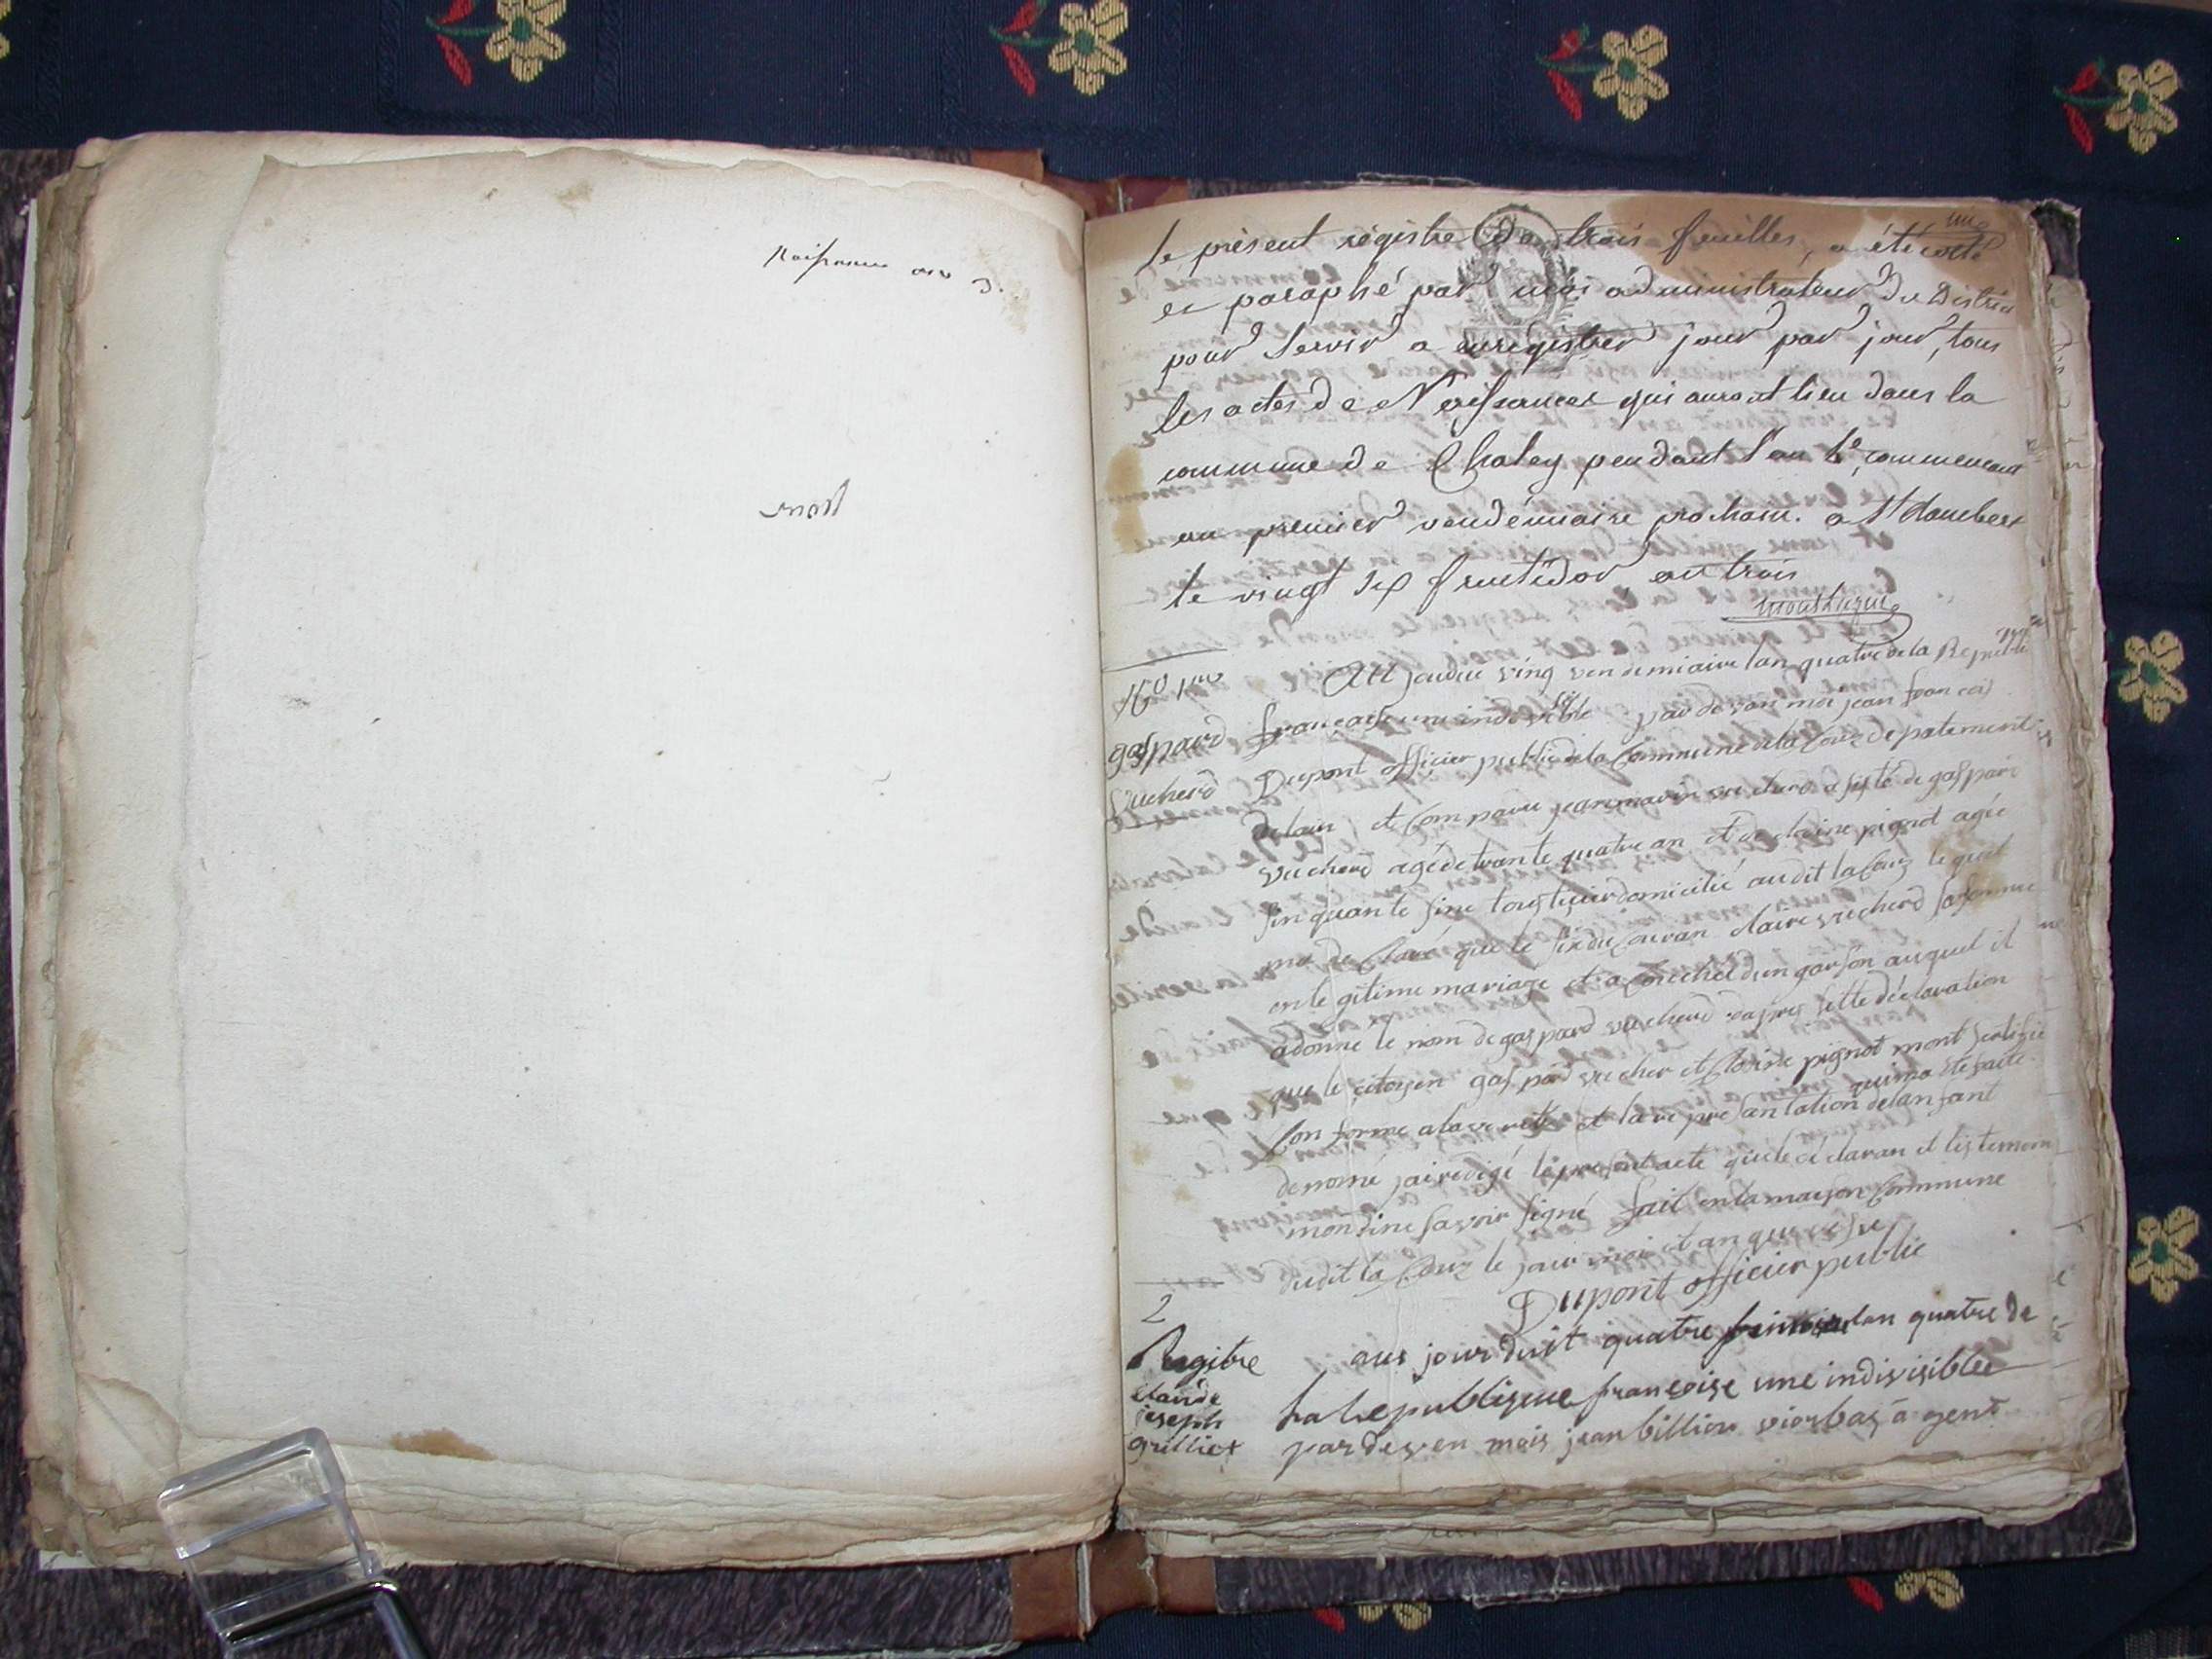 Naissances an 3.
mort
une
le présent régistre de trois feuilles, a été cotté
et paraphé par moi administrateur du District
pour servir a enregistrer jour par jour, tous
les actes de Naissances qui auront lieu dans la
commune de Chaley pendant l'an 4e, commencant
au premier vendémiaire prochain. a St Rambert
le vingt six fructidor an trois
No 1er
gaspard
vucherd
jourdui vinq vendemiaire lan quatre de la Republi
francaisse une indivisible par devan moi jean francois
Dupont officier public de la Commune de la Couz depatement
delain et Comparu jean marin vucherd asisté de gaspard
vucherd agé de trante quatre an et de claine pignot agée
sinquante sinc tous deux domicilié audit la Couz lequel
ma declaré que le claire vucherd safamme
en legitime mariage et acouchée dun garson auquel il
adonné le nom de gaspard vucherd dapres sette déclaration
que le citoyen gaspard vucher et Claine pignot mont sertifié
Conforme ala verité et la represantation delanfant
quima ete faite
denomé jai redigé le present acte que le declaran et les temoin
mon dine savoir signé fait en la maison Commune
dudit la Couz le jour moi et an que desu
Dupont officier public
2
Claude
joseph
grilliet
aus jourduit quatre frimaire lan quatre de
la Republique francoise une indivisible
pardeven mois jean billion viorbas agent